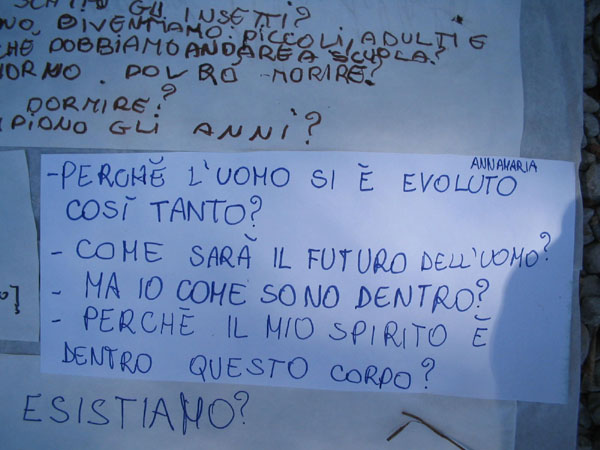 GLI INSETTI?
NO, DIVENTIAMO PICCOLI, ADULTI E
CHÉ DOBBIAMO ANDARE A SCUOLA?
IORNO. DOVRÒ MORIRE?
DORMIRE?
PIONO GLI ANNI?
ANNAMARIA
-PERCHÈ L'UOMO SI È EVOLUTO
COSÌ TANTO?
- COME SARÀ IL FUTURO DELL'UOMO?
- MA IO COME SONO DENTRO?
- PERCHÈ IL MIO SPIRITO È
DENTRO QUESTO CORPO?
ESISTIAMO?